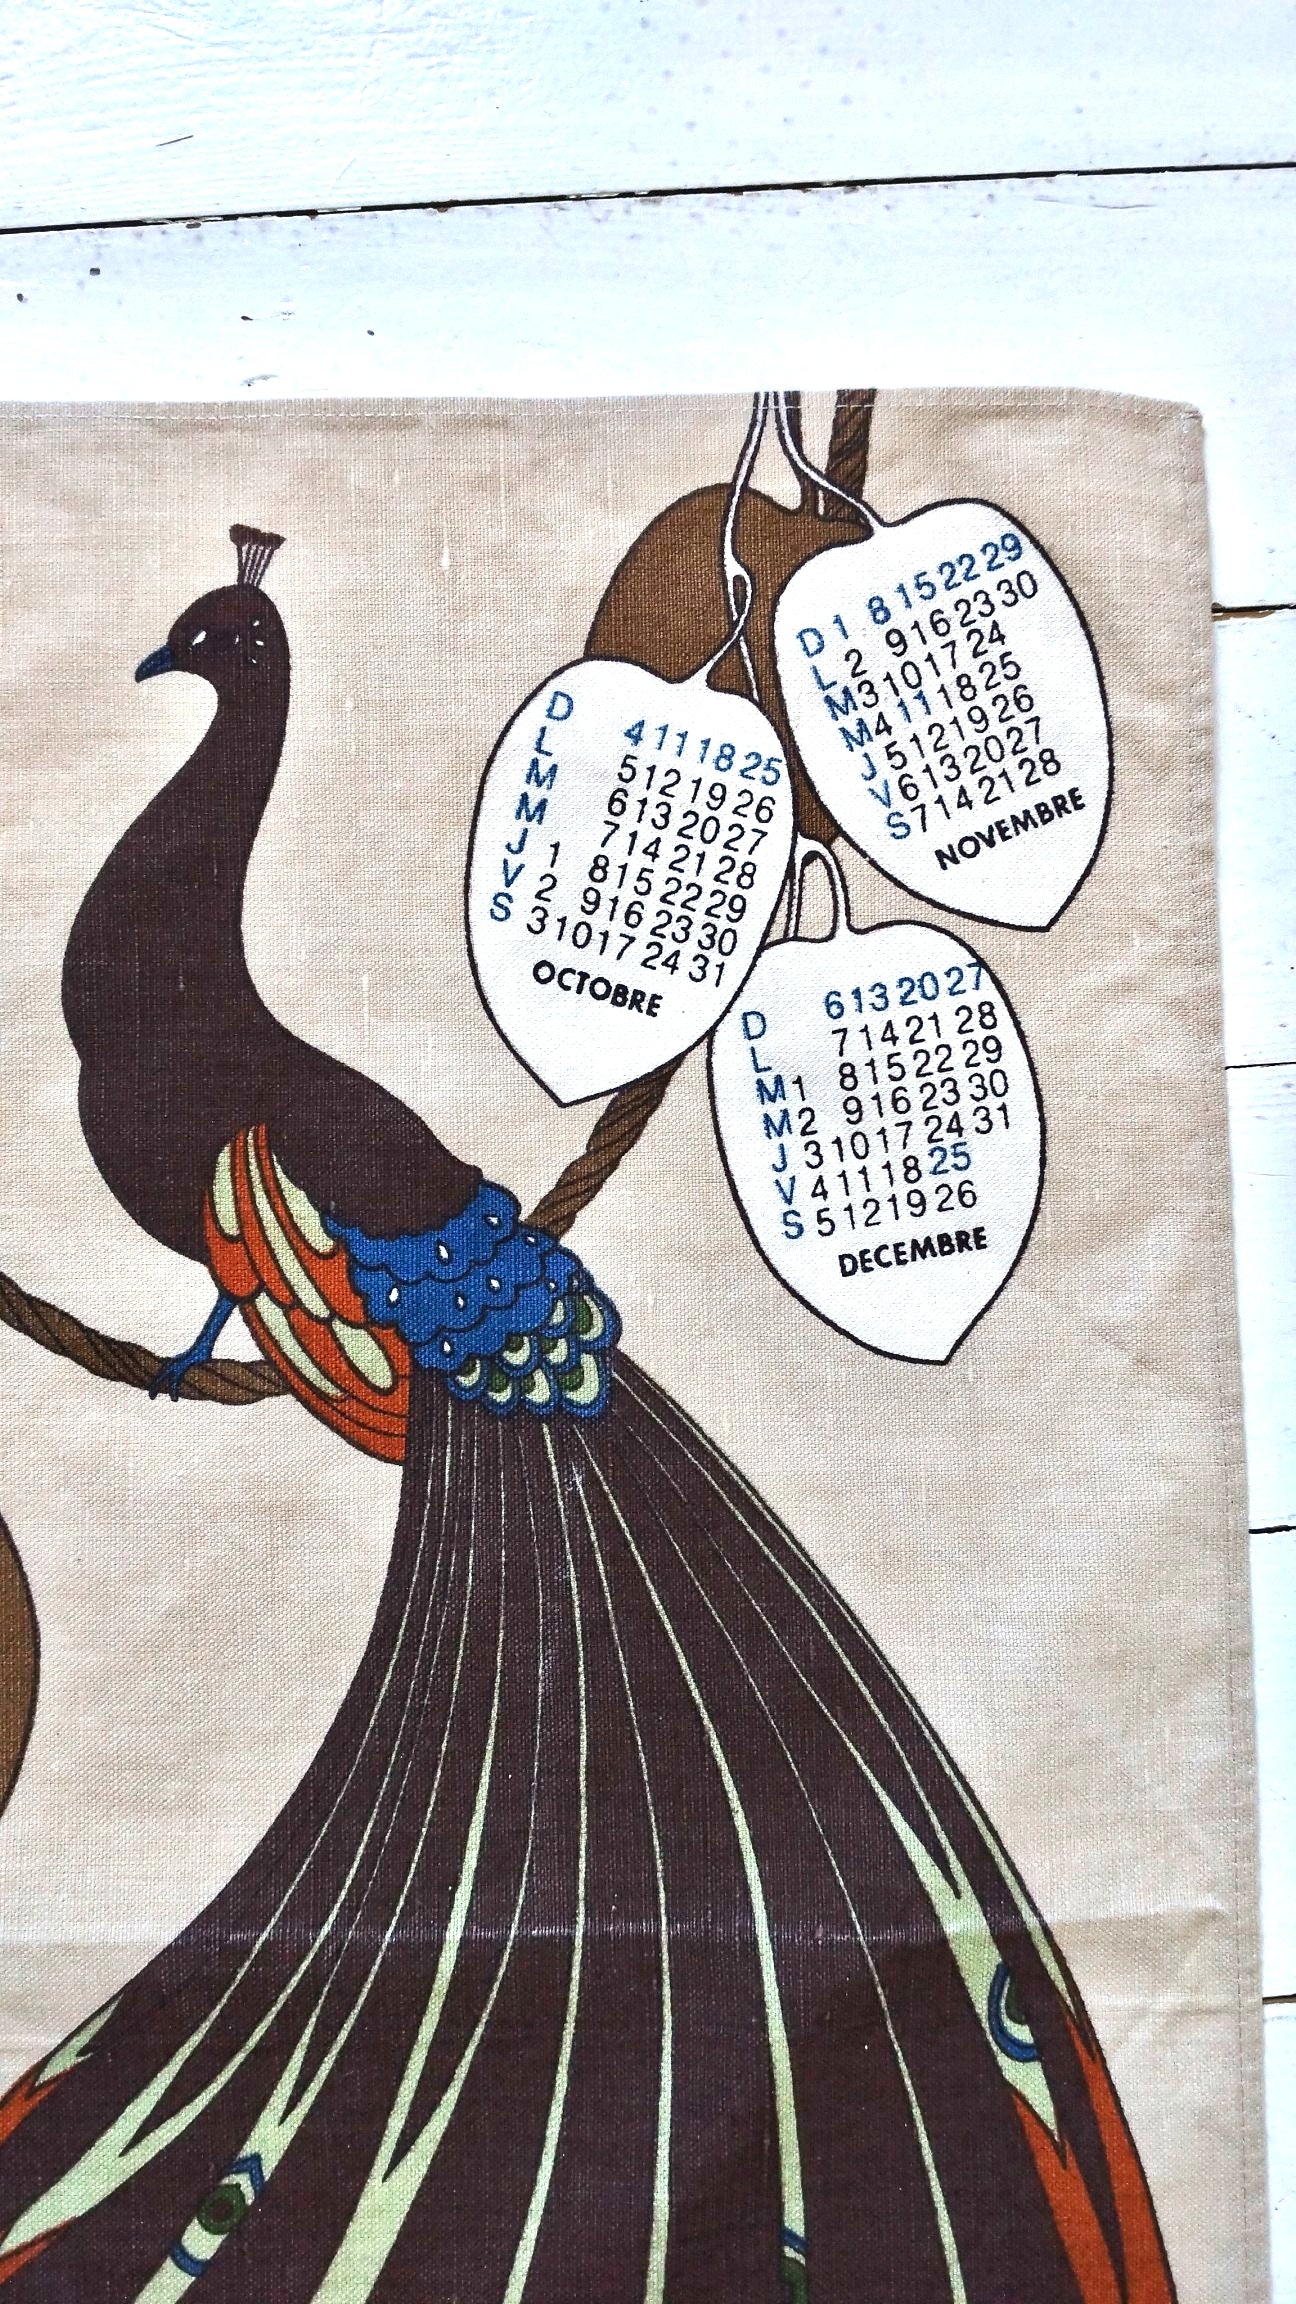 D 4 11 18 25
L 5 12 19 26
M 6 13 20 27
M 7 14 21 28
J 1 8 15 22 29
V 2 9 16 23 30
S 3 10 17 24 31
OCTOBRE
D 1 8 15 22 29
L 2 9 16 23 30
M 3 10 17 24
M 4 11 18 25
J 5 12 19 26
V 6 13 20 27
S 7 14 21 28
NOVEMBRE
D 6 13 20 27
L 7 14 21 28
M 1 8 15 22 29
M 2 9 16 23 30
J 3 10 17 24 31
V 4 11 18 25
S 5 12 19 26
DECEMBRE